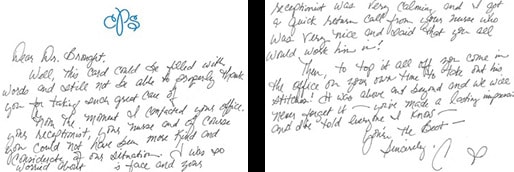 CPS
Dear Dr. Brought,
Well, this card could be filled with
words and still not be able to properly thank
you for taking such great care of
From the moment I contacted your office,
your receptionist, your nurse and of course
you could not have been more kind and
considerate of our situation. I was so
worried about is face and your
receptionist was very calming and I got
a quick return call from your nurse who
was very nice and said that you all
would work him in!
Then, to top it all off you come in
the office on your own time to take out his
stitches! It was above and beyond and we will
never forget it — you've made a lasting impression
and I've told everyone I know —
You're the Best —
Sincerely,